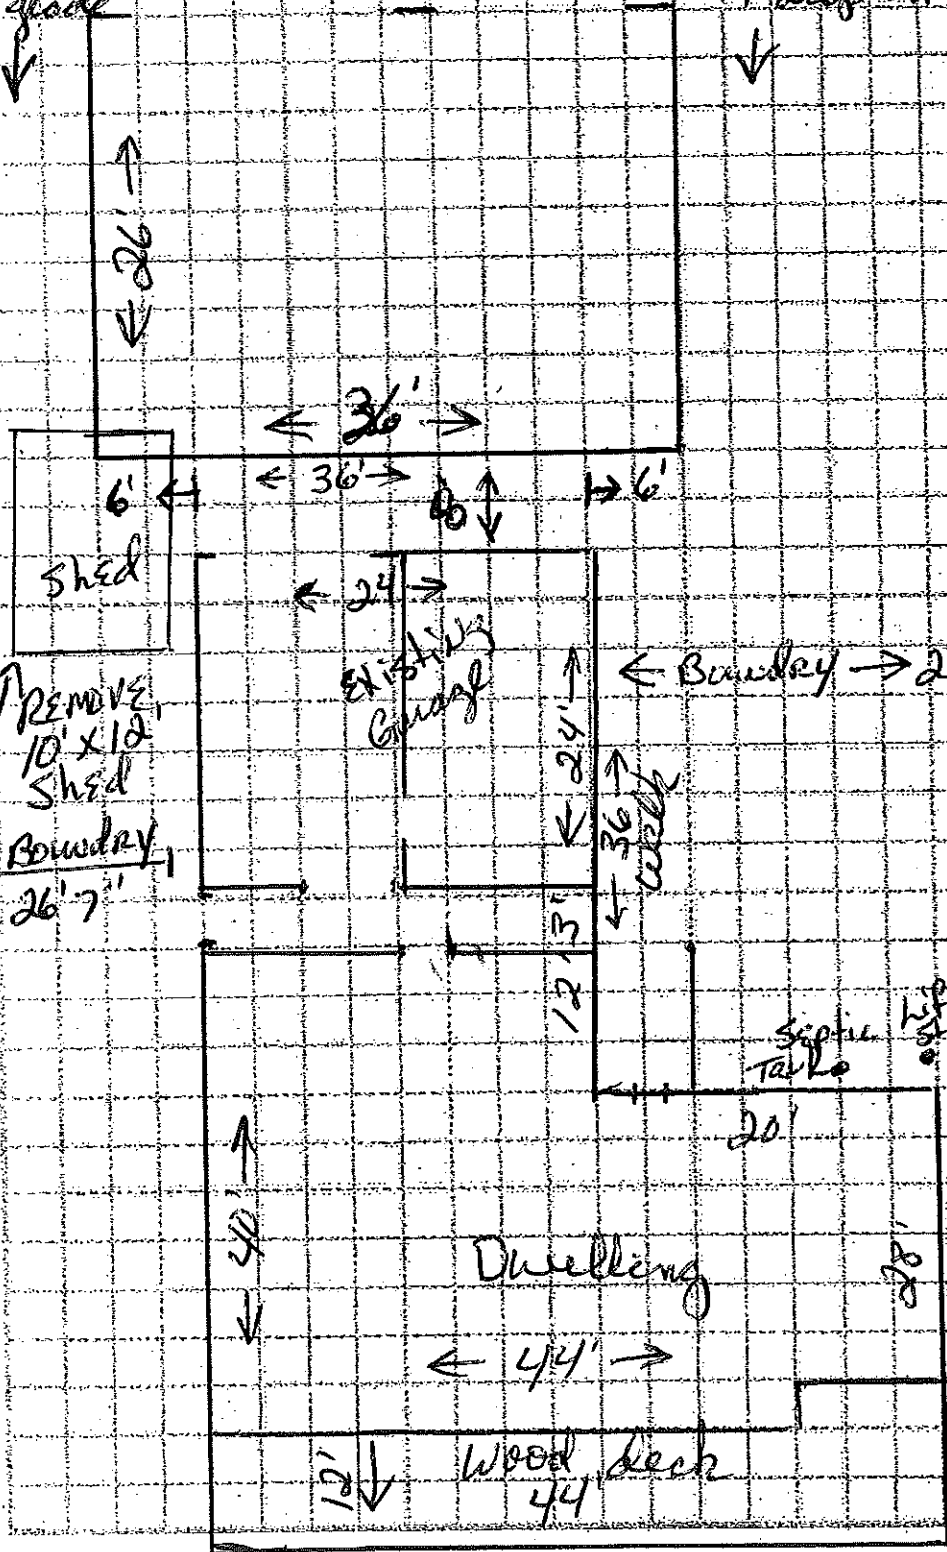 grade
26'
36'
36'
6'
6'
Shed
24'
Existing
Garage
24'
Boundry 2
REMOVE
10' x 12'
Shed
Boundry
26' 7"
36
Walk
3'
12'
Septic
Tank
Lift
St.
20'
40'
Dwelling
28'
44'
12'
Wood deck
44'